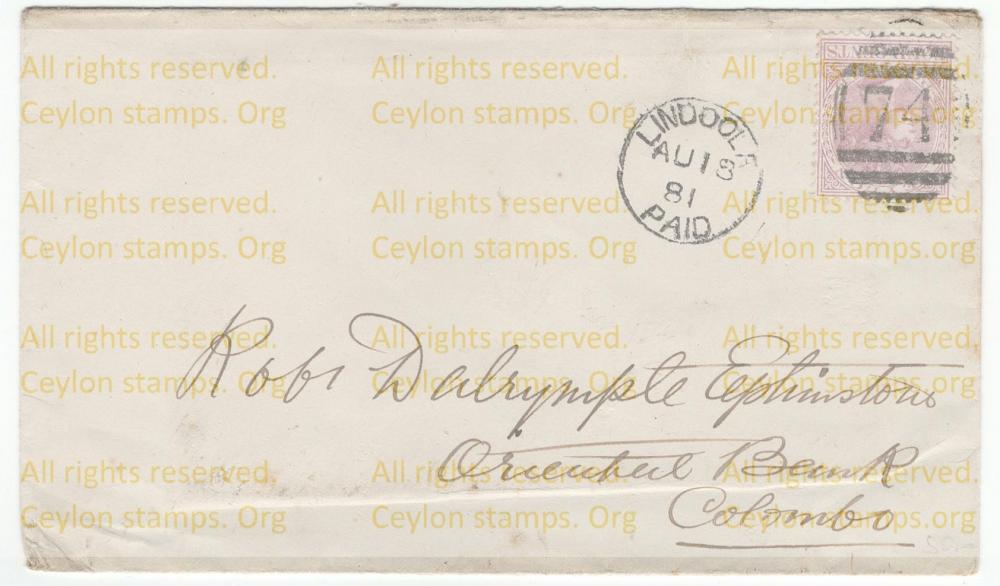 LINDOOLA
AU 18
81
PAID
74
Robt Dalrymple Elphinstone
Oriental Bank
Colombo
All rights reserved. All rights reserved. All rights reserved.
Ceylon stamps. Org Ceylon stamps. Org Ceylon stamps. Org
All rights reserved. All rights reserved. All rights reserved.
Ceylon stamps. Org Ceylon stamps. Org Ceylon stamps. Org
All rights reserved. All rights reserved. All rights reserved.
Ceylon stamps. Org Ceylon stamps. Org Ceylon stamps. Org
All rights reserved. All rights reserved. All rights reserved.
Ceylon stamps. Org Ceylon stamps. Org Ceylon stamps. Org